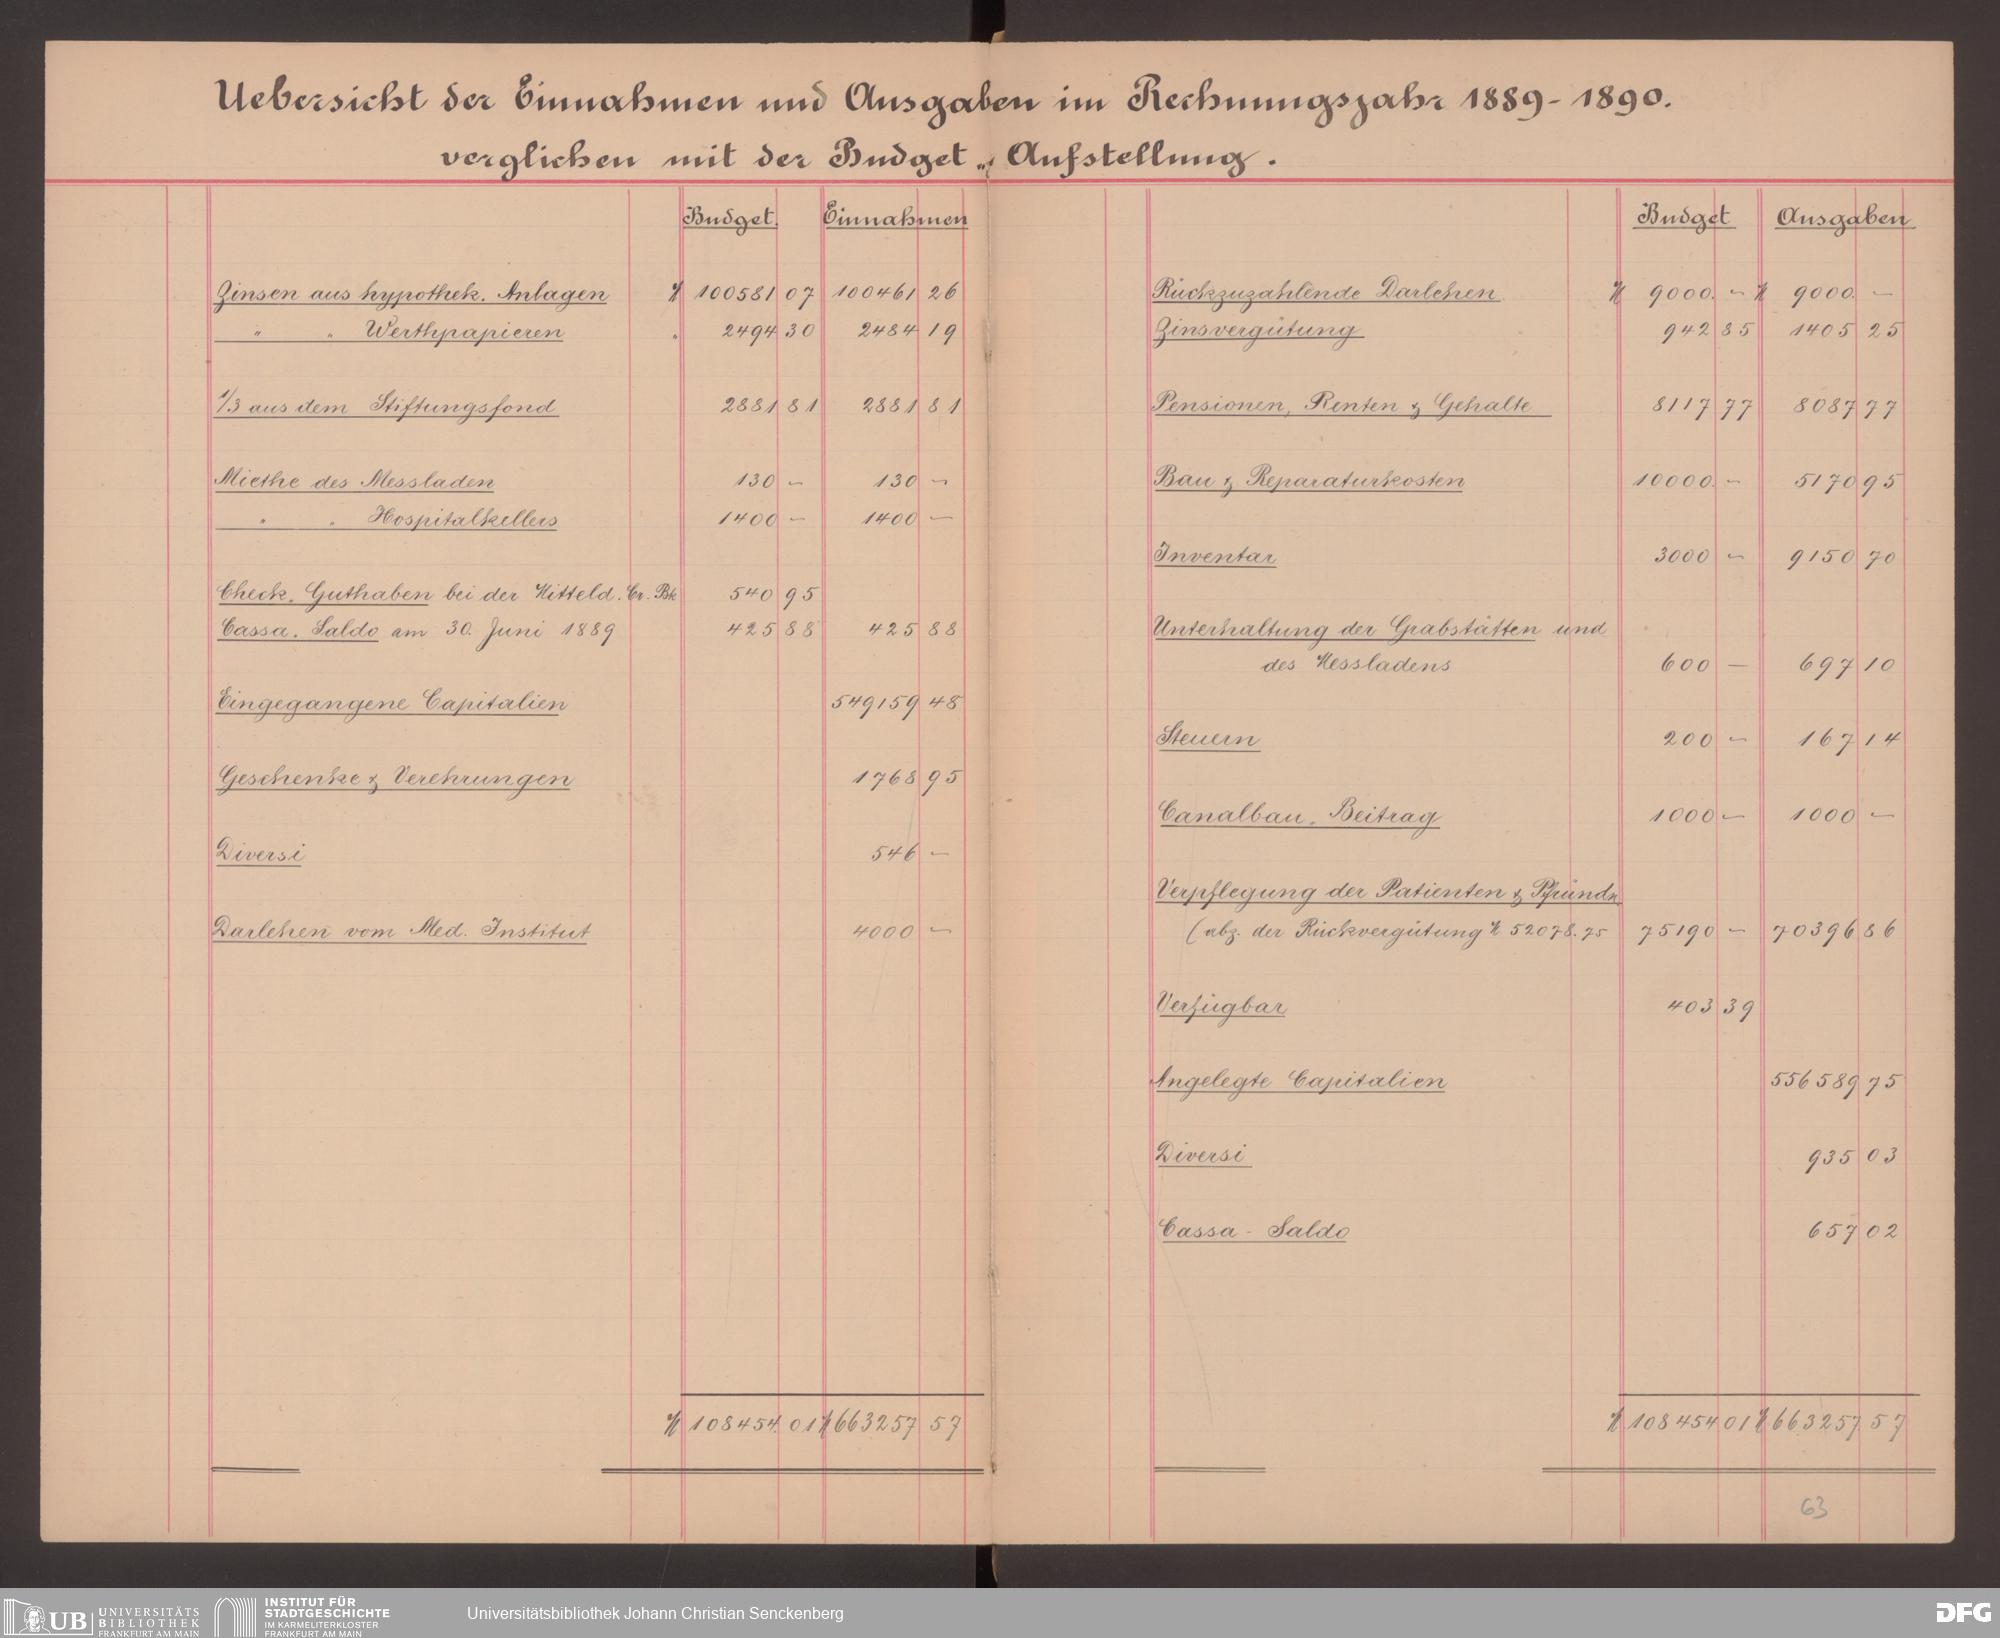 Uebersicht der Einnahmen und Ausgaben im Rechnungsjahr 1889-1890.
verglichen mit der Budget-Aufstellung.
Budget. Einnahmen
Zinsen aus hypothek. Anlagen ℳ 100581 07 100461 26
" " Werthpapieren " 2494 30 2484 19
1/3 aus dem Stiftungsfond 2881 81 2881 81
Miethe des Messladen 130 – 130 –
" " Hospitalkellers 1400 – 1400 –
Check-Guthaben bei der Mitteld. Cr. Bk 540 95
Cassa-Saldo am 30. Juni 1889 425 88 425 88
Eingegangene Capitalien 549159 48
Geschenke & Verehrungen 1768 95
Diversi 546 –
Darlehen vom Med. Institut 4000 –
ℳ 108454. 01 ℳ 663257 57
Budget Ausgaben
Rückzuzahlende Darlehen ℳ 9000. – ℳ 9000. –
Zinsvergütung 942 85 1405 25
Pensionen, Renten & Gehalte 8117 77 8087 77
Bau & Reparaturkosten 10000. – 5170 95
Inventar 3000 – 9150 70
Unterhaltung der Grabstätten und
des Messladens 600 – 697 10
Steuern 200 – 167 14
Canalbau-Beitrag 1000 – 1000 –
Verpflegung der Patienten & Pfründn
(abz. der Rückvergütung ℳ 52078.75 75190 – 70396 86
Verfügbar 403 39
Angelegte Capitalien 556589 75
Diversi 935 03
Cassa-Saldo 657 02
ℳ 108454 01 ℳ 663257 57
63
UB UNIVERSITÄTS
BIBLIOTHEK
FRANKFURT AM MAIN
INSTITUT FÜR
STADTGESCHICHTE
IM KARMELITERKLOSTER
FRANKFURT AM MAIN
Universitätsbibliothek Johann Christian Senckenberg
DFG